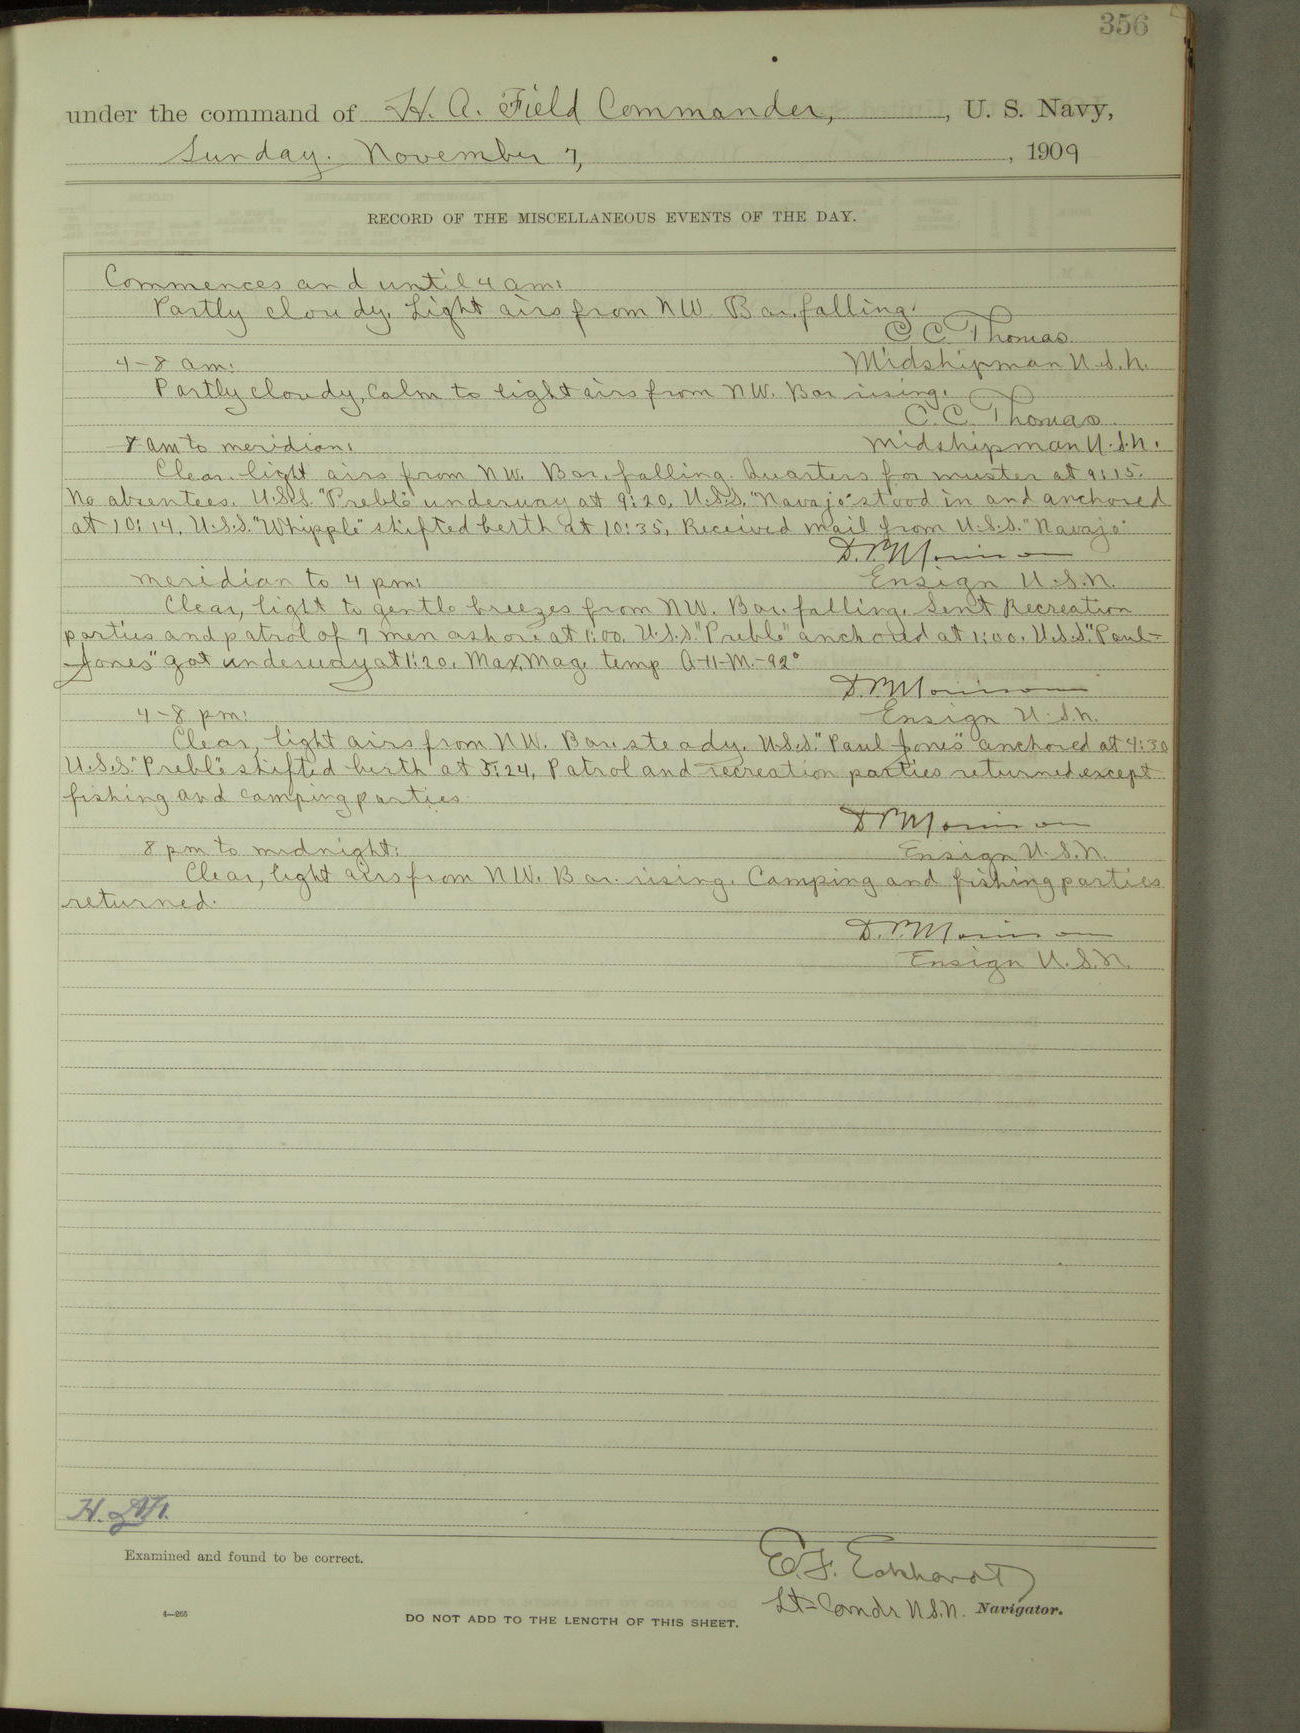 356
under the command of H. A. Field Commander, , U. S. Navy,
Sunday. November 7, , 1909
RECORD OF THE MISCELLANEOUS EVENTS OF THE DAY.
Commences and until 4 am:
Partly cloudy, Light airs from NW. Bar. falling.
C. C. Thomas
4-8 am: Midshipman U.S.N.
Partly cloudy, Calm to light airs from NW. Bar rising.
C. C. Thomas
8 am to meridian: Midshipman U.S.N.
Clear. light airs from NW. Bar. falling. Quarters for muster at 9:15.
No absentees. U.S.S. "Preble" underway at 9:20, U.S.S. "Navajo" stood in and anchored
at 10:14. U.S.S. "Whipple" shifted berth at 10:35, Received mail from U.S.S. "Navajo"
D. P. Morrison
meridian to 4 pm: Ensign U.S.N.
Clear, light to gentle breezes from NW. Bar. falling. Sent Recreation
parties and patrol of 7 men ashore at 1:00. U.S.S. "Preble" anchored at 1:00. U.S.S. "Paul-
Jones" got underway at 1:20. Max. Mag. temp A-11-M.-92°
D. P. Morrison
4-8 pm: Ensign U.S.N.
Clear, light airs from NW. Bar. steady. U.S.S. "Paul Jones" anchored at 4:30
U.S.S. "Preble" shifted berth at 5:24, Patrol and recreation parties returned except
fishing and camping parties.
D. P. Morrison
8 pm to midnight: Ensign U.S.N.
Clear, light airs from NW. Bar. rising. Camping and fishing parties
returned.
D. P. Morrison
Ensign U.S.N.
Examined and found to be correct.
E. F. Eckhardt
Lt-Comdr U.S.N. Navigator.
4—265
DO NOT ADD TO THE LENGTH OF THIS SHEET.